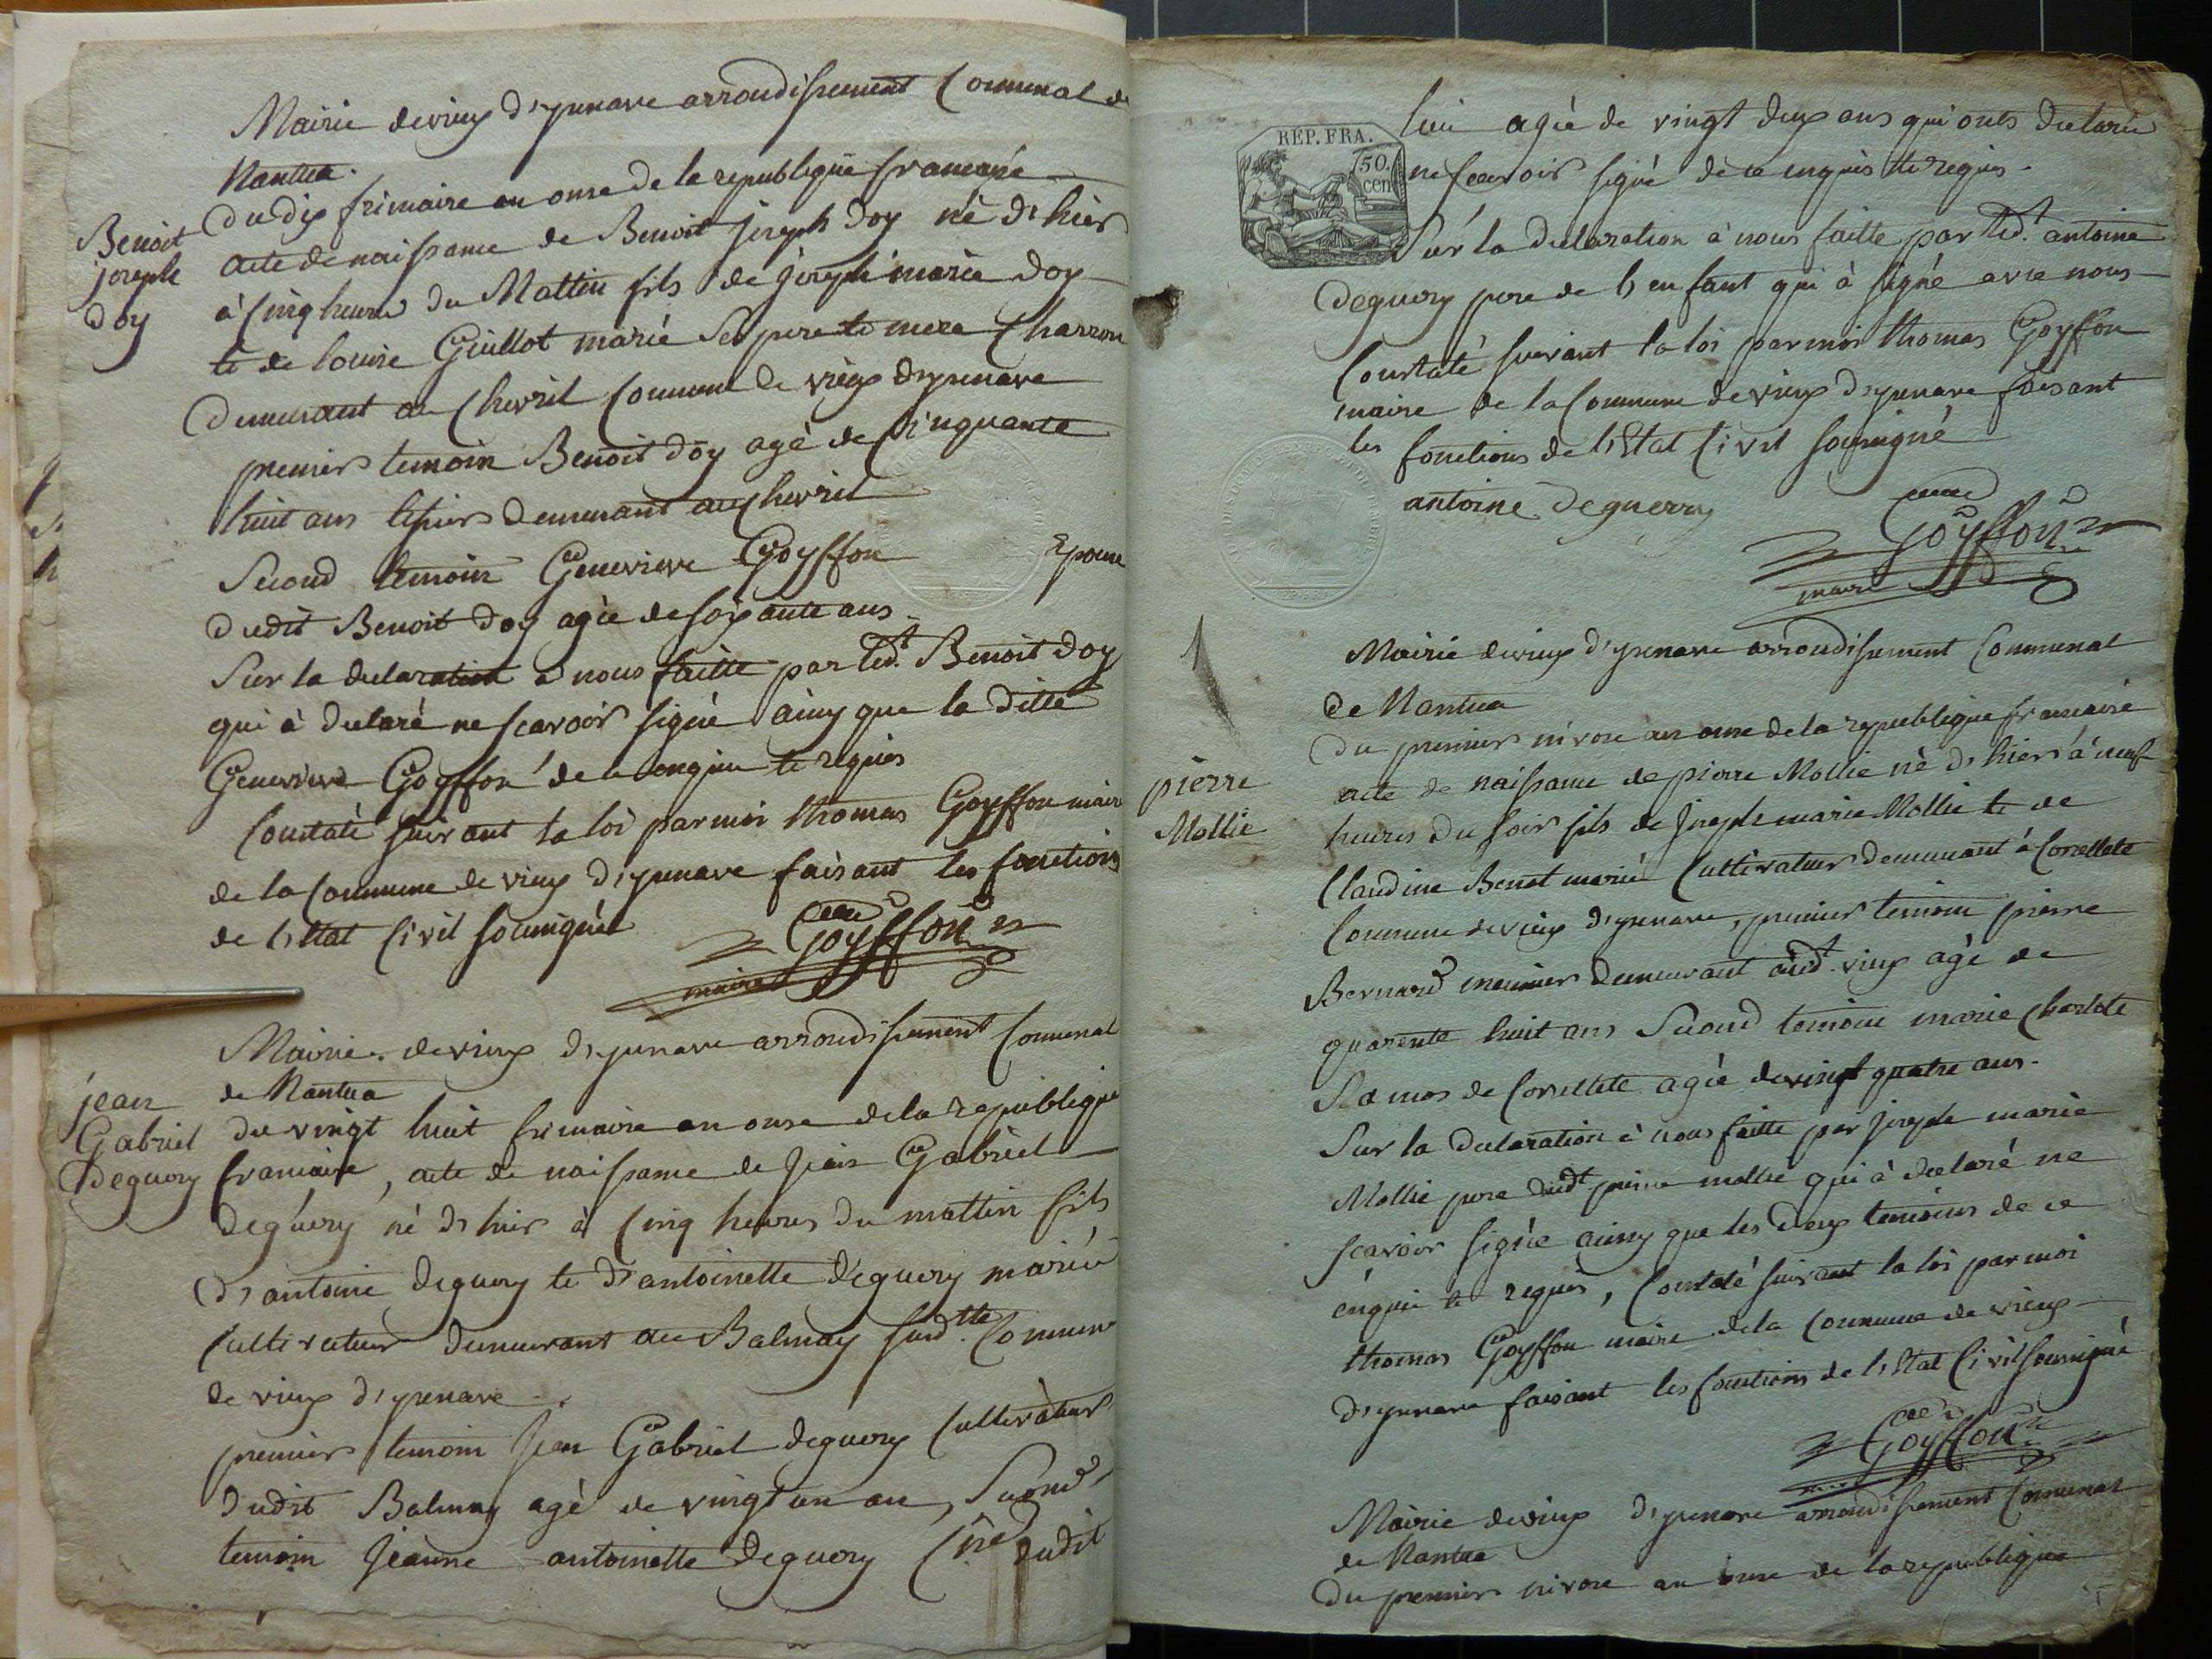 Mairie de vieux d'yzenave arrondissement Communal de
Nantua.
Du dix frimaire an onse de la republique francaise
Benoit
joseph
doy
acte de naissance de Benoit joseph doy né d'hier
à Cinq heures du Mattin fils de joseph marie doy
et de louise Guillot mariés ses pere et mere Charron
demeurant au Chevril Commune de vieux d'yzenave
premier temoin Benoit doy agé de Cinquante
huit ans demeurant au Chevril
Second temoin Genevieve Goyffon Epouse
dudit Benoit doy agée de soixante ans
Sur la declaration à nous faitte par led.t Benoit doy
qui à declaré ne scavoir signé ainsy que la ditte
Genevieve Goyffon de ce enquis et requis
Constaté suivant la loi par moi thomas Goyffon maire
de la Commune de vieux d'yzenave faisant les fonctions
de l'Etat Civil soussigné
Goyffon
maire
Mairie de vieux d'yzenave arrondissement Communal
de Nantua
jean
Gabriel
deguery
du vingt huit frimaire an onse de la republique
francaise, acte de naissance de Jean Gabriel
deguery né d'hier à Cinq heures du mattin fils
d'antoine deguery et d'antoinette deguery mariés
Cultivateur demeurant au Balmay sud.tte Commune
de vieux d'yzenave
premier temoin Jean Gabriel deguery Cultivateur
dudit Balmay agé de vingt un an, Second
temoin Jeanne antoinette deguery dudit
REP. FRA.
50.
cen
lieu agée de vingt deux ans qui onts declarés
ne scavoir signé de ce enquis et requis.
Sur la declaration à nous faitte par led.t antoine
deguery pere de l'enfant qui à signé avec nous
Constaté suivant la loi par moi thomas Goyffon
maire de la Commune de vieux d'yzenave faisant
les fonctions de l'Etat Civil soussigné
antoine deguerry
Goyffon
maire
Mairie de vieux d'yzenave arrondissement Communal
de Nantua
Du premier nivose an onse de la republique francaise
pierre
Mollie
acte de naissance de pierre Mollie né d'hier à neuf
heures du soir fils de Joseph marie Mollie et de
Claudine Benoit mariés Cultivateur demeurant à Corcellete
Commune de vieux d'yzenave, premier temoin pierre
Bernard meunier demeurant aud.t vieux agé de
quarente huit ans Second temoin marie Charlote
Ramos de Corcellete agée de vingt quatre ans.
Sur la declaration à nous faitte par Joseph marie
Mollie pere dud.t pierre mollie qui à declaré ne
scavoir signée ainsy que les deux temoins de ce
énquis et requis, Constaté suivant la loi par moi
thomas Goyffon maire de la Commune de vieux
d'yzenave faisant les fonctions de l'Etat Civil soussigné
Goyffon
Mairie de vieux d'yzenave arrondissement Communal
de Nantua
Du premier nivose an onse de la republique